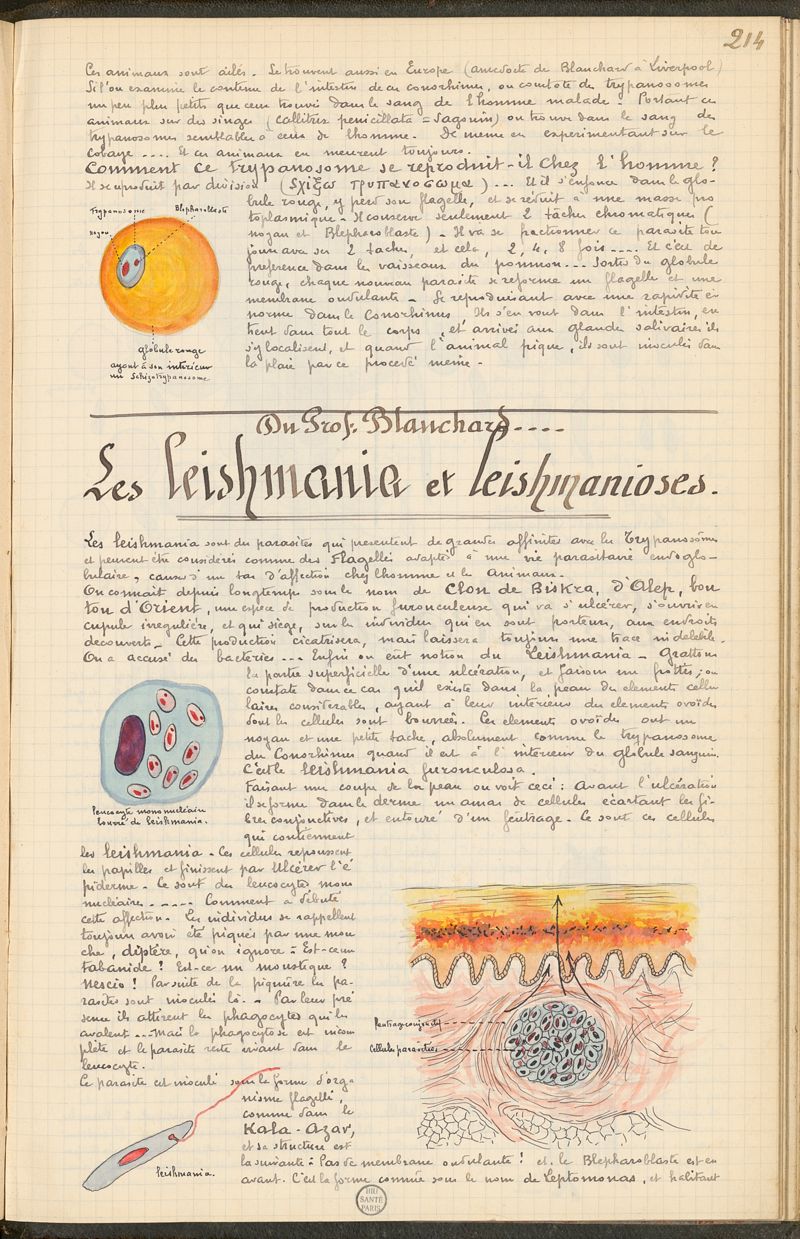 214
Ces animaux sont ailés. Se trouvent aussi en Europe (anecdote de Blanchard à Liverpool)
Si l'on examine le contenu de l'intestin de ces conorhinus, on constate des trypanosomes
un peu plus petits que ceux trouvés dans le sang de l'homme malade. Portant ces
animaux sur des singes (callitrix penicillata = sagouin) on trouve dans le sang des
trypanosomes semblables à ceux de l'homme. De meme en experimentant sur le
cobaye .... Et ces animaux en meurent toujours.
Comment ce trypanosome se reproduit-il chez l'homme ?
Il se reproduit par division (σχίζω τρυπανοσωμα) ... Et il s'enfonce dans le glo-
bule rouge, y perd son flagelle, et se réduit à une masse pro
toplasmique. Il conserve seulement 2 tâches chromatiques (
noyau et Blepharoblaste). Il va se fractionner ce parasite tou
jours avec ses 2 taches, et cela, 2, 4, 8 fois .... Et c'est de
preference dans les vaisseaux du poumon ... Sortis du globule
rouge, chaque nouveau parasite se reforme un flagelle et une
membrane ondulante. Se reproduisant avec une rapidité é-
norme dans le Conorhinus, ils s'en vont dans l'intestin, en
trent dans tout le corps, et arrivés aux glandes salivaires ils
s'y localisent, et quand l'animal pique, ils sont inoculés dans
la plaie par ce procédé meme.
Trypanosome
Blepharoblaste
Noyau
globule rouge
ayant à son intérieur
un Schizotrypanosome
Du Prof. Blanchard....
Les leishmania et leishmanioses.
Les leishmania sont des parasites qui presentent de grandes affinités avec les Trypanosomes
et peuvent être considérés comme des Flagellés adaptés à une vie parasitaire endoglo-
bulaire, causes d'un tas d'affection chez l'homme et les animaux.
On connait depuis longtemps sous le nom de Clou de Biskra, d'Alep, bou
ton d'Orient, une espèce de production furonculeuse qui va s'ulcérer, s'ouvrir en
cupule irregulière, et qui siège, sur les individus qui en sont porteurs, aux endroits
decouverts. Cette production cicatrisera, mais laissera toujours une trace indelebile.
On a accusé des bactéries ... Enfin on eut notion du Leishmania. Grattons
la partie superficielle d'une ulcération, et faisons un frottis; on
constate dans ce cas qu'il existe dans la peau des elements cellu
laires considerables, ayant à leur intérieur des elements ovoïdes
dont les cellules sont bourrées. Ces elements ovoïdes ont un
noyau et une petite tache, absolument comme le trypanosome
du Conorhinus quand il est à l'interieur du globule sanguin.
C'est le leishmania furonculosa.
Faisant une coupe de la peau on voit ceci : Avant l'ulcération
il se forme dans le derme un amas de cellules écartant les fi-
bres conjonctives, et entouré d'un feutrage. Ce sont ces cellules
qui contiennent
leucocyte mononucléaire
bourré de leishmania.
les leishmania. Ces cellules repoussent
les papilles et finissent par Ulcérer l'é
piderme. Ce sont des leucocytes mono
nucléaires. .... Comment a débuté
cette affection. Les individus se rappellent
toujours avoir été piqués par une mou
che, diptère, qu'on ignore. Est-ce un
tabanide ? Est-ce un moustique ?
Nescio ! Par suite de la piquûre les pa-
rasites sont inoculés là. Par leur pré
sence ils attirent les phagocytes qui les
avalent ... Mais la phagocytose est incom
plète et le parasite reste vivant dans le
leucocyte.
Ce parasite est inoculé sous la forme d'orga
nisme flagellé,
comme dans le
Kala-Azar,
et sa structure est
la suivante : Pas de membrane ondulante ! et le Blepharoblaste est en
avant. C'est la forme connue sous le nom de Leptomonas, et habitant
Feutrage conjonctif
Cellules parasitées
leishmania.
BIU
SANTÉ
PARIS